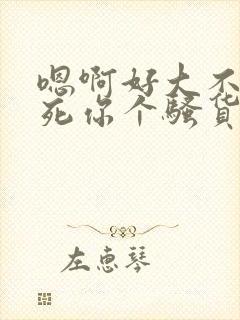 嗯啊好大不
死你个骚货
左惠琴